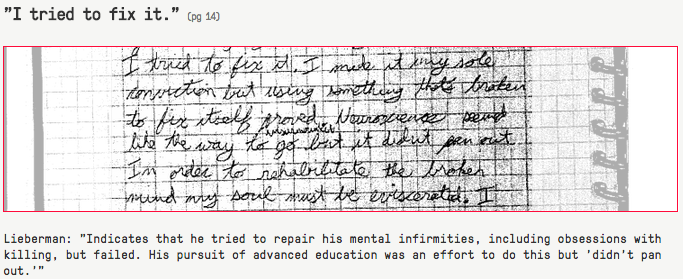 "I tried to fix it." (pg 14)
I tried to fix it. I made it my sole
conviction but using something thats broken
to fix itself proved insurmountable. Neuroscience seemed
like the way to go but it didnt pan out.
In order to rehabilitate the broken
mind my soul must be eviscerated. I
Lieberman: "Indicates that he tried to repair his mental infirmities, including obsessions with
killing, but failed. His pursuit of advanced education was an effort to do this but 'didn't pan
out.'"